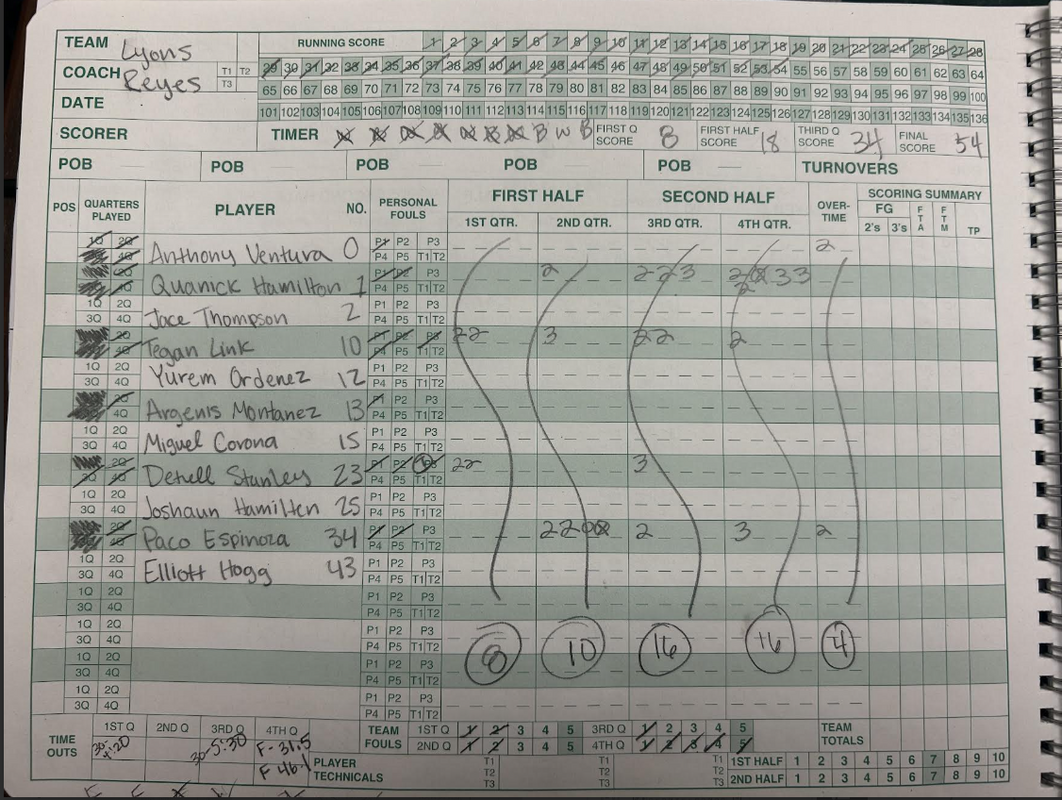 TEAM Lyons RUNNING SCORE 1 2 3 4 5 6 7 8 9 10 11 12 13 14 15 16 17 18 19 20 21 22 23 24 25 26 27 28
COACH Reyes T1 T2 T3 29 30 31 32 33 34 35 36 37 38 39 40 41 42 43 44 45 46 47 48 49 50 51 52 53 54 55 56 57 58 59 60 61 62 63 64
65 66 67 68 69 70 71 72 73 74 75 76 77 78 79 80 81 82 83 84 85 86 87 88 89 90 91 92 93 94 95 96 97 98 99 100
DATE 101 102 103 104 105 106 107 108 109 110 111 112 113 114 115 116 117 118 119 120 121 122 123 124 125 126 127 128 129 130 131 132 133 134 135 136
SCORER TIMER B W B FIRST Q SCORE 8 FIRST HALF SCORE 18 THIRD Q SCORE 34 FINAL SCORE 54
POB POB POB POB POB TURNOVERS
POS QUARTERS PLAYED PLAYER NO. PERSONAL FOULS FIRST HALF SECOND HALF OVER-TIME SCORING SUMMARY
1ST QTR. 2ND QTR. 3RD QTR. 4TH QTR. FG 2's 3's FTA FTM TP
1Q 2Q 4Q Anthony Ventura 0 P1 P2 P3 P4 P5 T1 T2 2
2Q 4Q Quanick Hamilton 1 P1 P2 P3 P4 P5 T1 T2 2 2 2 3 2 33 2
1Q 2Q 3Q 4Q Jace Thompson 2 P1 P2 P3 P4 P5 T1 T2
2Q 4Q Tegan Link 10 P1 P2 P3 P4 P5 T1 T2 22 3 22 2
1Q 2Q 3Q 4Q Yurem Ordenez 12 P1 P2 P3 P4 P5 T1 T2
2Q 4Q Argenis Montanez 13 P1 P2 P3 P4 P5 T1 T2
1Q 2Q 3Q 4Q Miguel Corona 15 P1 P2 P3 P4 P5 T1 T2
2Q 3Q 4Q Stanley 23 P1 P2 P4 P5 T1 T2 22 3
1Q 2Q 3Q 4Q Joshaun Hamilton 25 P1 P2 P3 P4 P5 T1 T2
2Q 4Q Paco Espinoza 34 P1 P2 P3 P4 P5 T1 T2 22 2 3 2
1Q 2Q 3Q 4Q Elliott Hogg 43 P1 P2 P3 P4 P5 T1 T2
1Q 2Q 3Q 4Q P1 P2 P3 P4 P5 T1 T2
1Q 2Q 3Q 4Q P1 P2 P3 P4 P5 T1 T2 8 10 16 16 4
1Q 2Q 3Q 4Q P1 P2 P3 P4 P5 T1 T2
1Q 2Q 3Q 4Q P1 P2 P3 P4 P5 T1 T2
TIME OUTS 1ST Q 2ND Q 3RD Q 4TH Q TEAM FOULS 1ST Q 1 2 3 4 5 3RD Q 1 2 3 4 5 TEAM TOTALS
30-5:30 F-31.5 2ND Q 1 2 3 4 5 4TH Q 1 2 3 4 5
F 46.1 PLAYER TECHNICALS T1 T2 T3 T1 T2 T3 T1 T2 T3 1ST HALF 1 2 3 4 5 6 7 8 9 10
2ND HALF 1 2 3 4 5 6 7 8 9 10